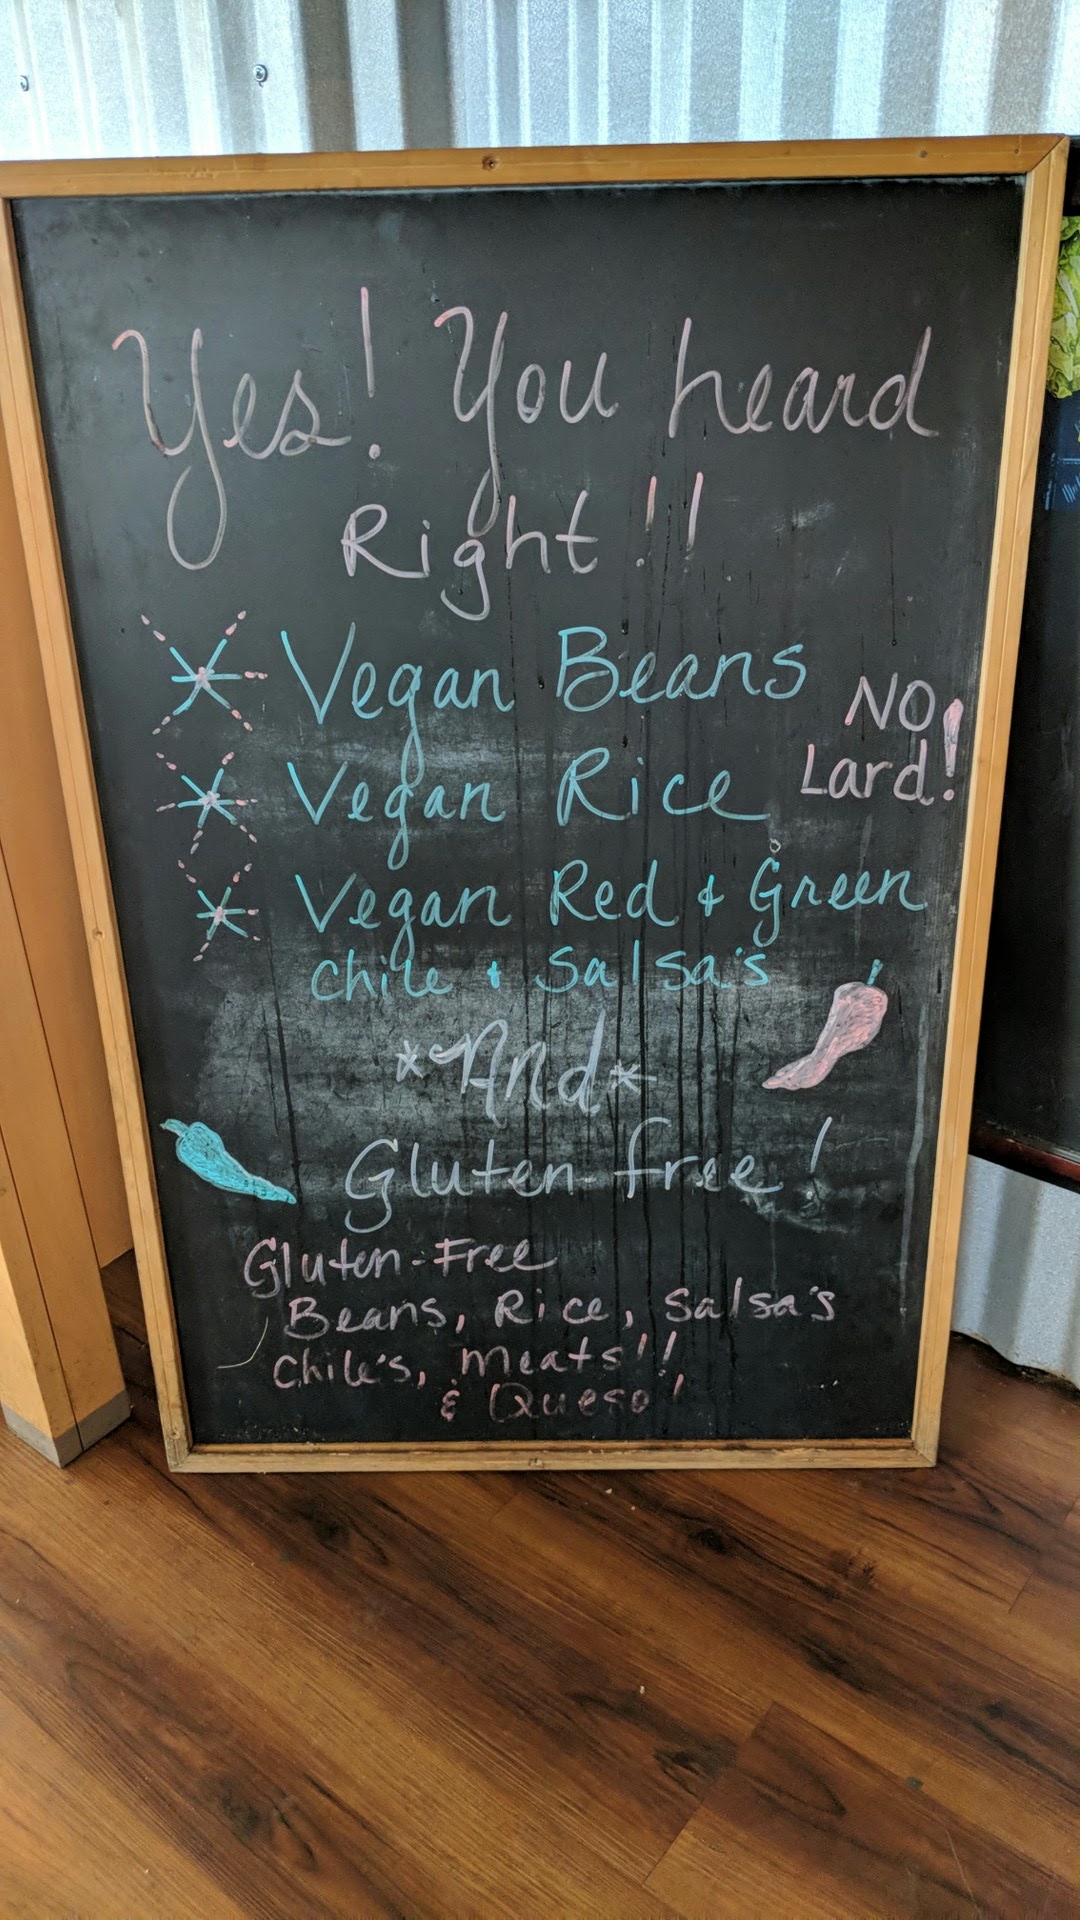 Yes! You heard
Right!!
Vegan Beans
NO
Lard!
Vegan Rice
Vegan Red & Green
Chile & Salsa's
*And*
Gluten-free!
Gluten-Free
Beans, Rice, Salsa's
Chile's, Meats!!
& Queso!